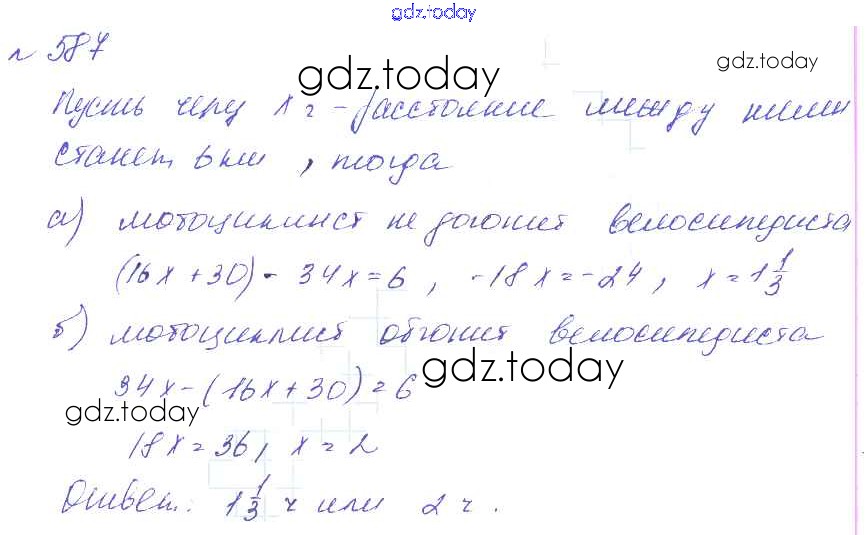 gdz.today
№ 587
gdz.today gdz.today
Пусть через x ч - расстояние между ними
станет 6 км, тогда
а) мотоциклист не догонит велосипедиста
(16x + 30) - 34x = 6, -18x = -24, x = 1 1/3
б) мотоциклист обгонит велосипедиста
gdz.today
34x - (16x + 30) = 6
gdz.today
18x = 36, x = 2
Ответ: 1 1/3 ч или 2 ч.